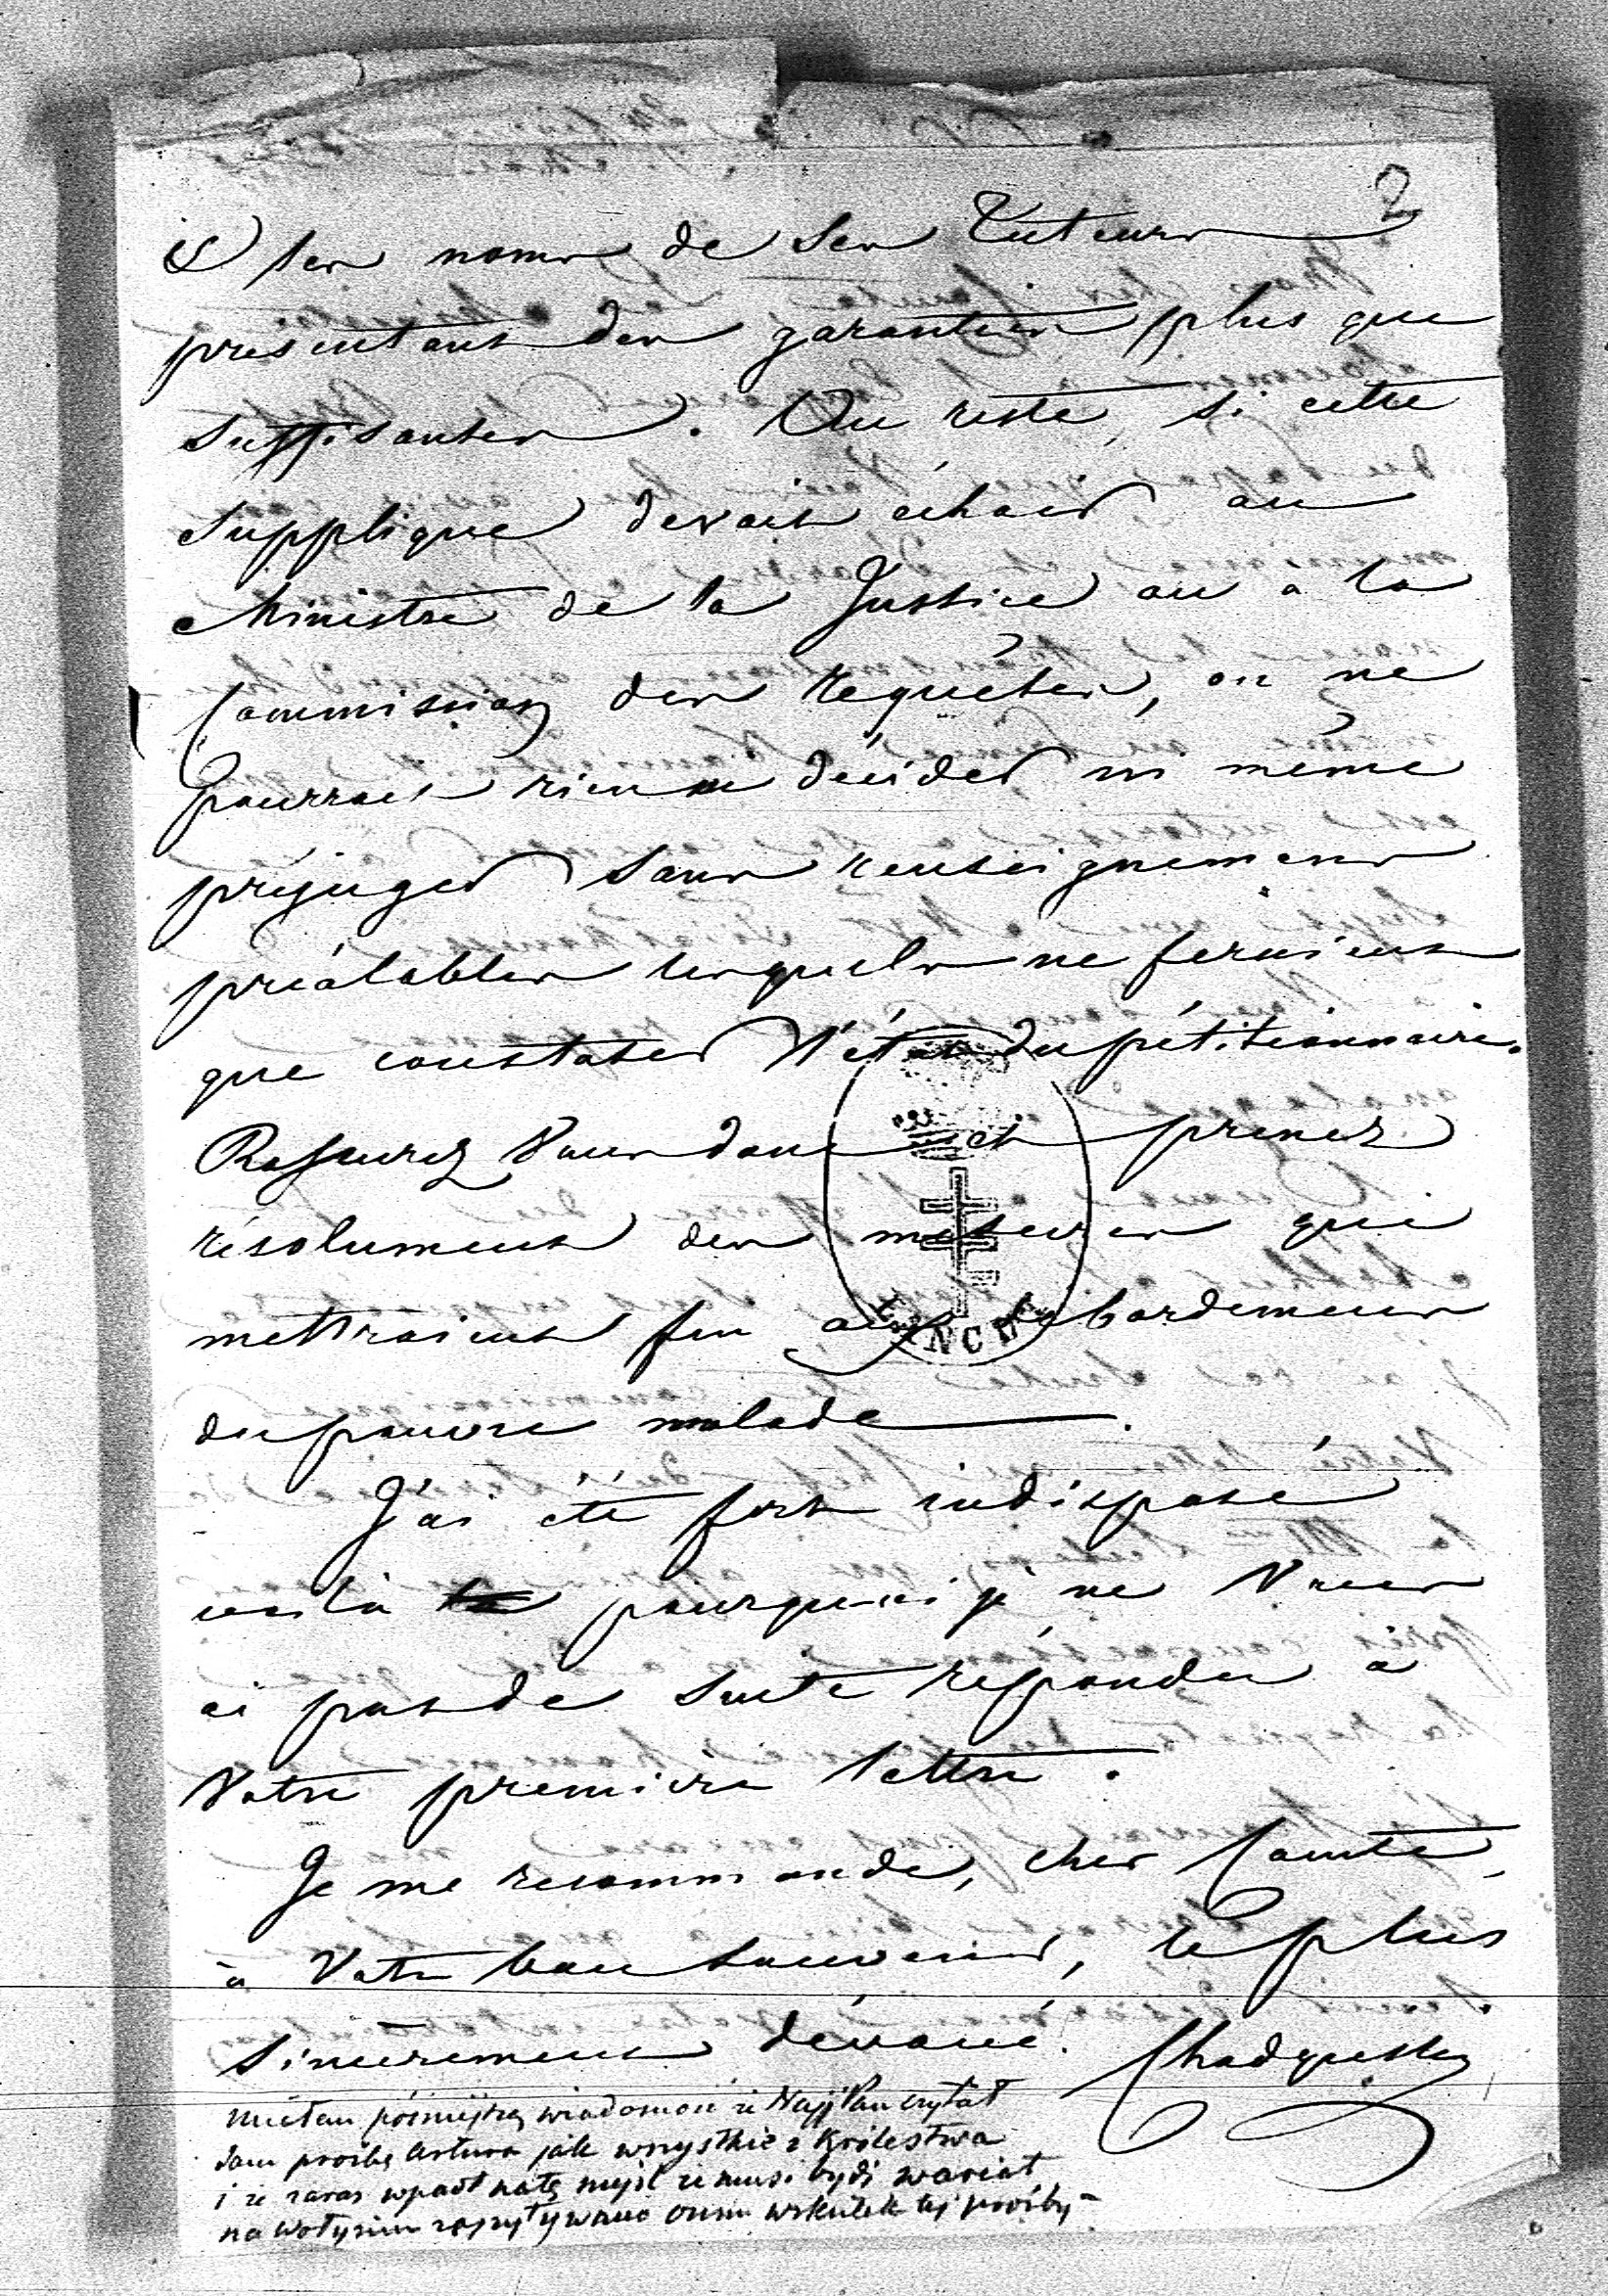 2
et les noms de ses Tuteurs
présentant des garanties plus que
suffisantes. Au reste, si cette
supplique devait échoir au
Ministre de la Justice ou à la
Commission des requêtes, on ne
pourrait rien décider ni même
préjuger sans renseignements
préalables lesquels ne feraient
que constater l'état du pétitionnaire.
Rassurez Vous donc et prenez
résolument des mesures qui
mettraient fin aux débordements
du pauvre malade.
J'ai été fort indisposé
voilà pourquoi je ne Vous
ai pas de suite répondu à
Votre première lettre.
Je me recommande, cher Comte,
à Votre bon souvenir, le plus
sincèrement dévoué.
miałam późniejszą wiadomość że Najj Pan czytał
sam prośbę Artura jak wszystkie z Królestwa
i że zaraz wpadł na tę myśl że musi bydź wariat
na Wołyniu zapytywano o nim wskutek tej prośby